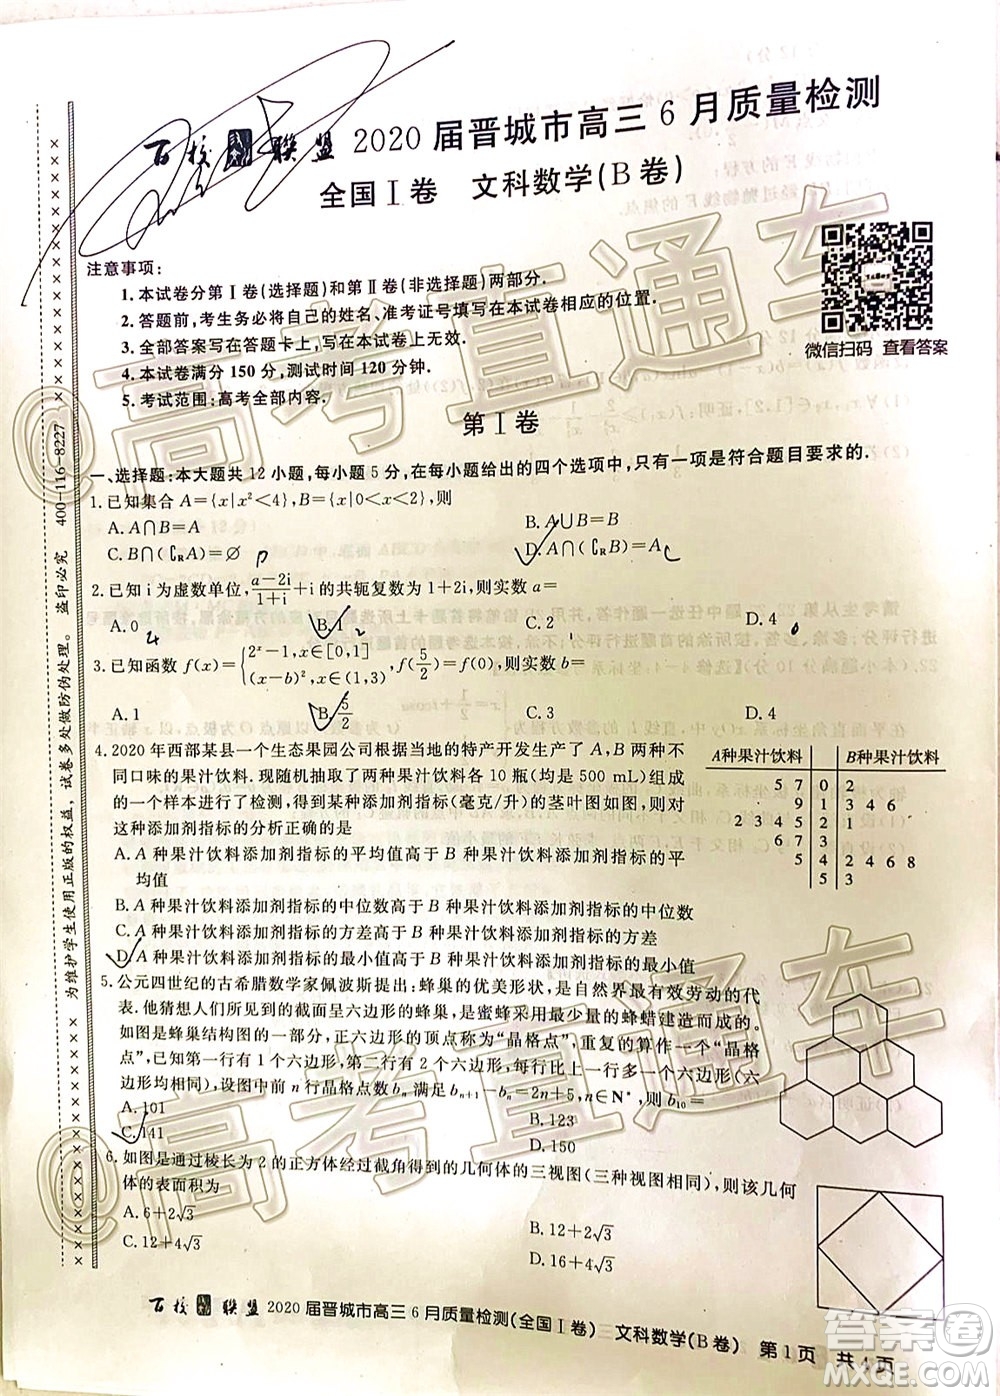 百校联盟 2020届晋城市高三6月质量检测
全国Ⅰ卷 文科数学(B卷)
注意事项:
1. 本试卷分第Ⅰ卷(选择题)和第Ⅱ卷(非选择题)两部分.
2. 答题前,考生务必将自己的姓名、准考证号填写在本试卷相应的位置.
3. 全部答案写在答题卡上,写在本试卷上无效.
4. 本试卷满分 150 分,测试时间 120 分钟.
5. 考试范围:高考全部内容.
微信扫码 查看答案
第Ⅰ卷
一、选择题:本大题共 12 小题,每小题 5 分,在每小题给出的四个选项中,只有一项是符合题目要求的.
1. 已知集合 A={x|x²<4},B={x|0<x<2},则
A. A∩B=B B. A∪B=B
C. B∩(∁RA)=∅ D. A∩(∁RB)=A
2. 已知 i 为虚数单位,(a-2i)/(1+i)+i的共轭复数为 1+2i,则实数 a=
A. 0 B. 1 C. 2 D. 4
3. 已知函数 f(x)={2ˣ-1,x∈[0,1] (x-b)²,x∈(1,3),f(5/2)=f(0),则实数 b=
A. 1 B. 5/2 C. 3 D. 4
4. 2020 年西部某县一个生态果园公司根据当地的特产开发生产了 A,B 两种不
同口味的果汁饮料.现随机抽取了两种果汁饮料各 10 瓶(均是 500 mL)组成的一
个样本进行了检测,得到某种添加剂指标(毫克/升)的茎叶图如图,则对
这种添加剂指标的分析正确的是
A. A 种果汁饮料添加剂指标的平均值高于 B 种果汁饮料添加剂指标的平
均值
B. A 种果汁饮料添加剂指标的中位数高于 B 种果汁饮料添加剂指标的中位数
C. A 种果汁饮料添加剂指标的方差高于 B 种果汁饮料添加剂指标的方差
D. A 种果汁饮料添加剂指标的最小值高于 B 种果汁饮料添加剂指标的最小值
A种果汁饮料 B种果汁饮料
5 7 0 2
9 1 3 4 6
2 3 4 5 2 1
6 7 3
5 4 2 4 6 8
5 3
5. 公元四世纪的古希腊数学家佩波斯提出:蜂巢的优美形状,是自然界最有效劳动的代
表.他猜想人们所见到的截面呈六边形的蜂巢,是蜜蜂采用最少量的蜂蜡建造而成的.
如图是蜂巢结构图的一部分,正六边形的顶点称为“晶格点”,重复的算作一个“晶格
点”,已知第一行有 1 个六边形,第二行有 2 个六边形,每行比上一行多一个六边形(六
边形均相同),设图中前 n 行晶格点数 bₙ 满足 bₙ₊₁-bₙ=2n+5,n∈N*,则 b₁₀=
A. 101 B. 123
C. 141 D. 150
6. 如图是通过棱长为 2 的正方体经过截角得到的几何体的三视图(三种视图相同),则该几何
体的表面积为
A. 6+2√3 B. 12+2√3
C. 12+4√3 D. 16+4√3
百校联盟 2020届晋城市高三6月质量检测(全国Ⅰ卷) 文科数学(B卷) 第1页 共4页
为维护学生使用正版的权益,试卷多处做防伪处理。 盗印必究 400-116-8227
@高考直通车
@高考直通车
答案圈